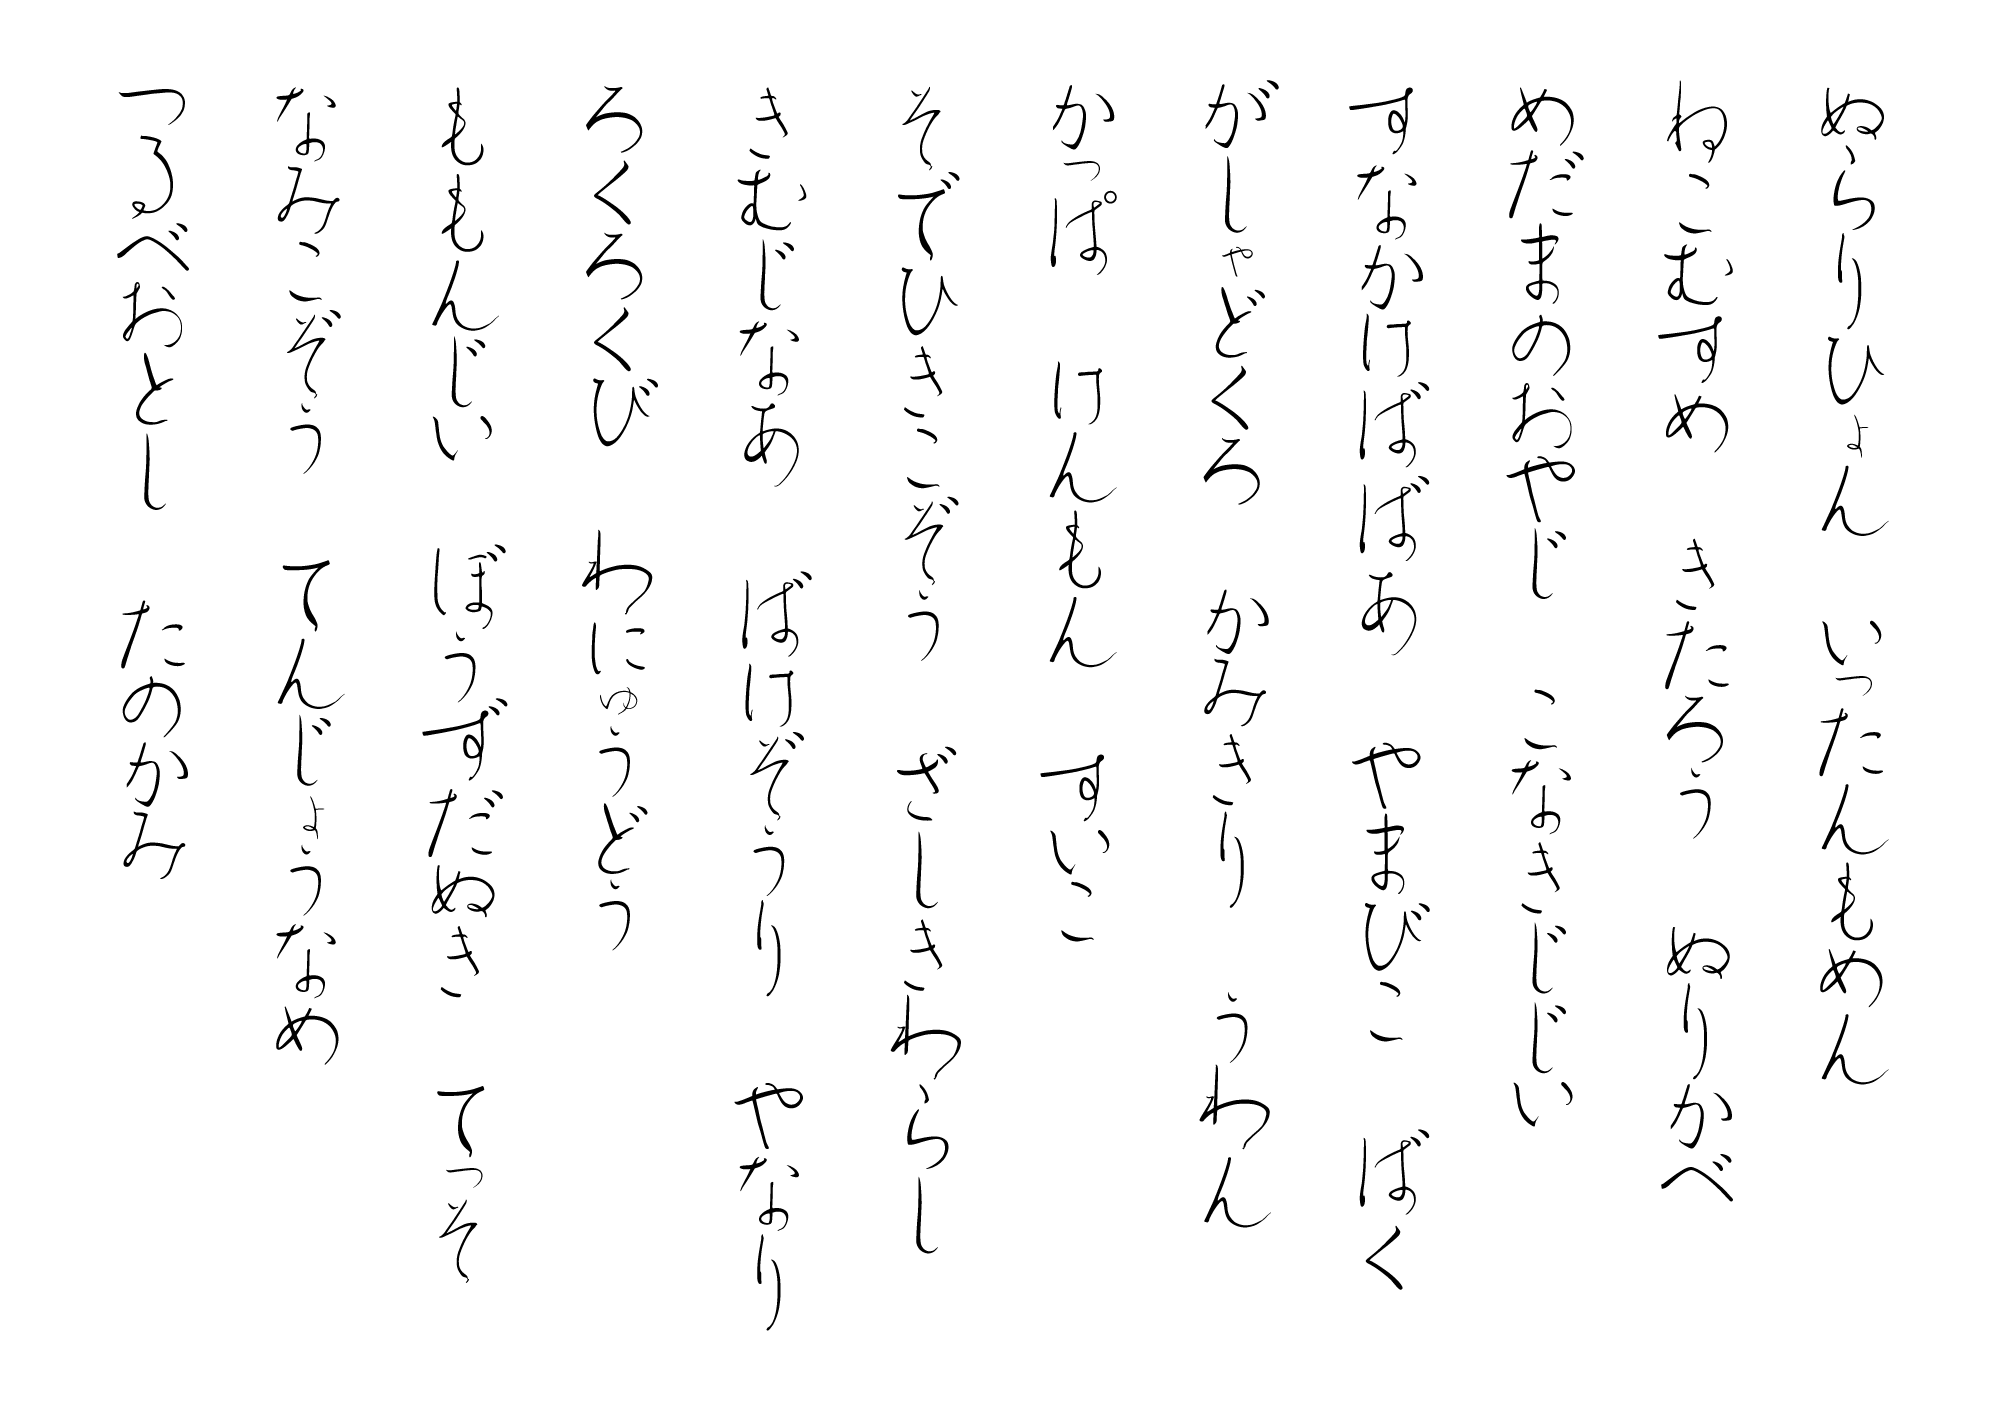 ぬらりひょん　いったんもめん
ねこむすめ　きたろう　ぬりかべ
めだまのおやじ　こなきじじい
すなかけばばあ　やまびこ　ばく
がしゃどくろ　かみきり　うわん
かっぱ　けんもん　すいこ
そでひきこぞう　ざしきわらし
きむじなあ　ばけぞうり　やなり
ろくろくび　わにゅうどう
ももんじい　ぼうずだぬき　てっそ
なみこぞう　てんじょうなめ
つるべおとし　たのかみ